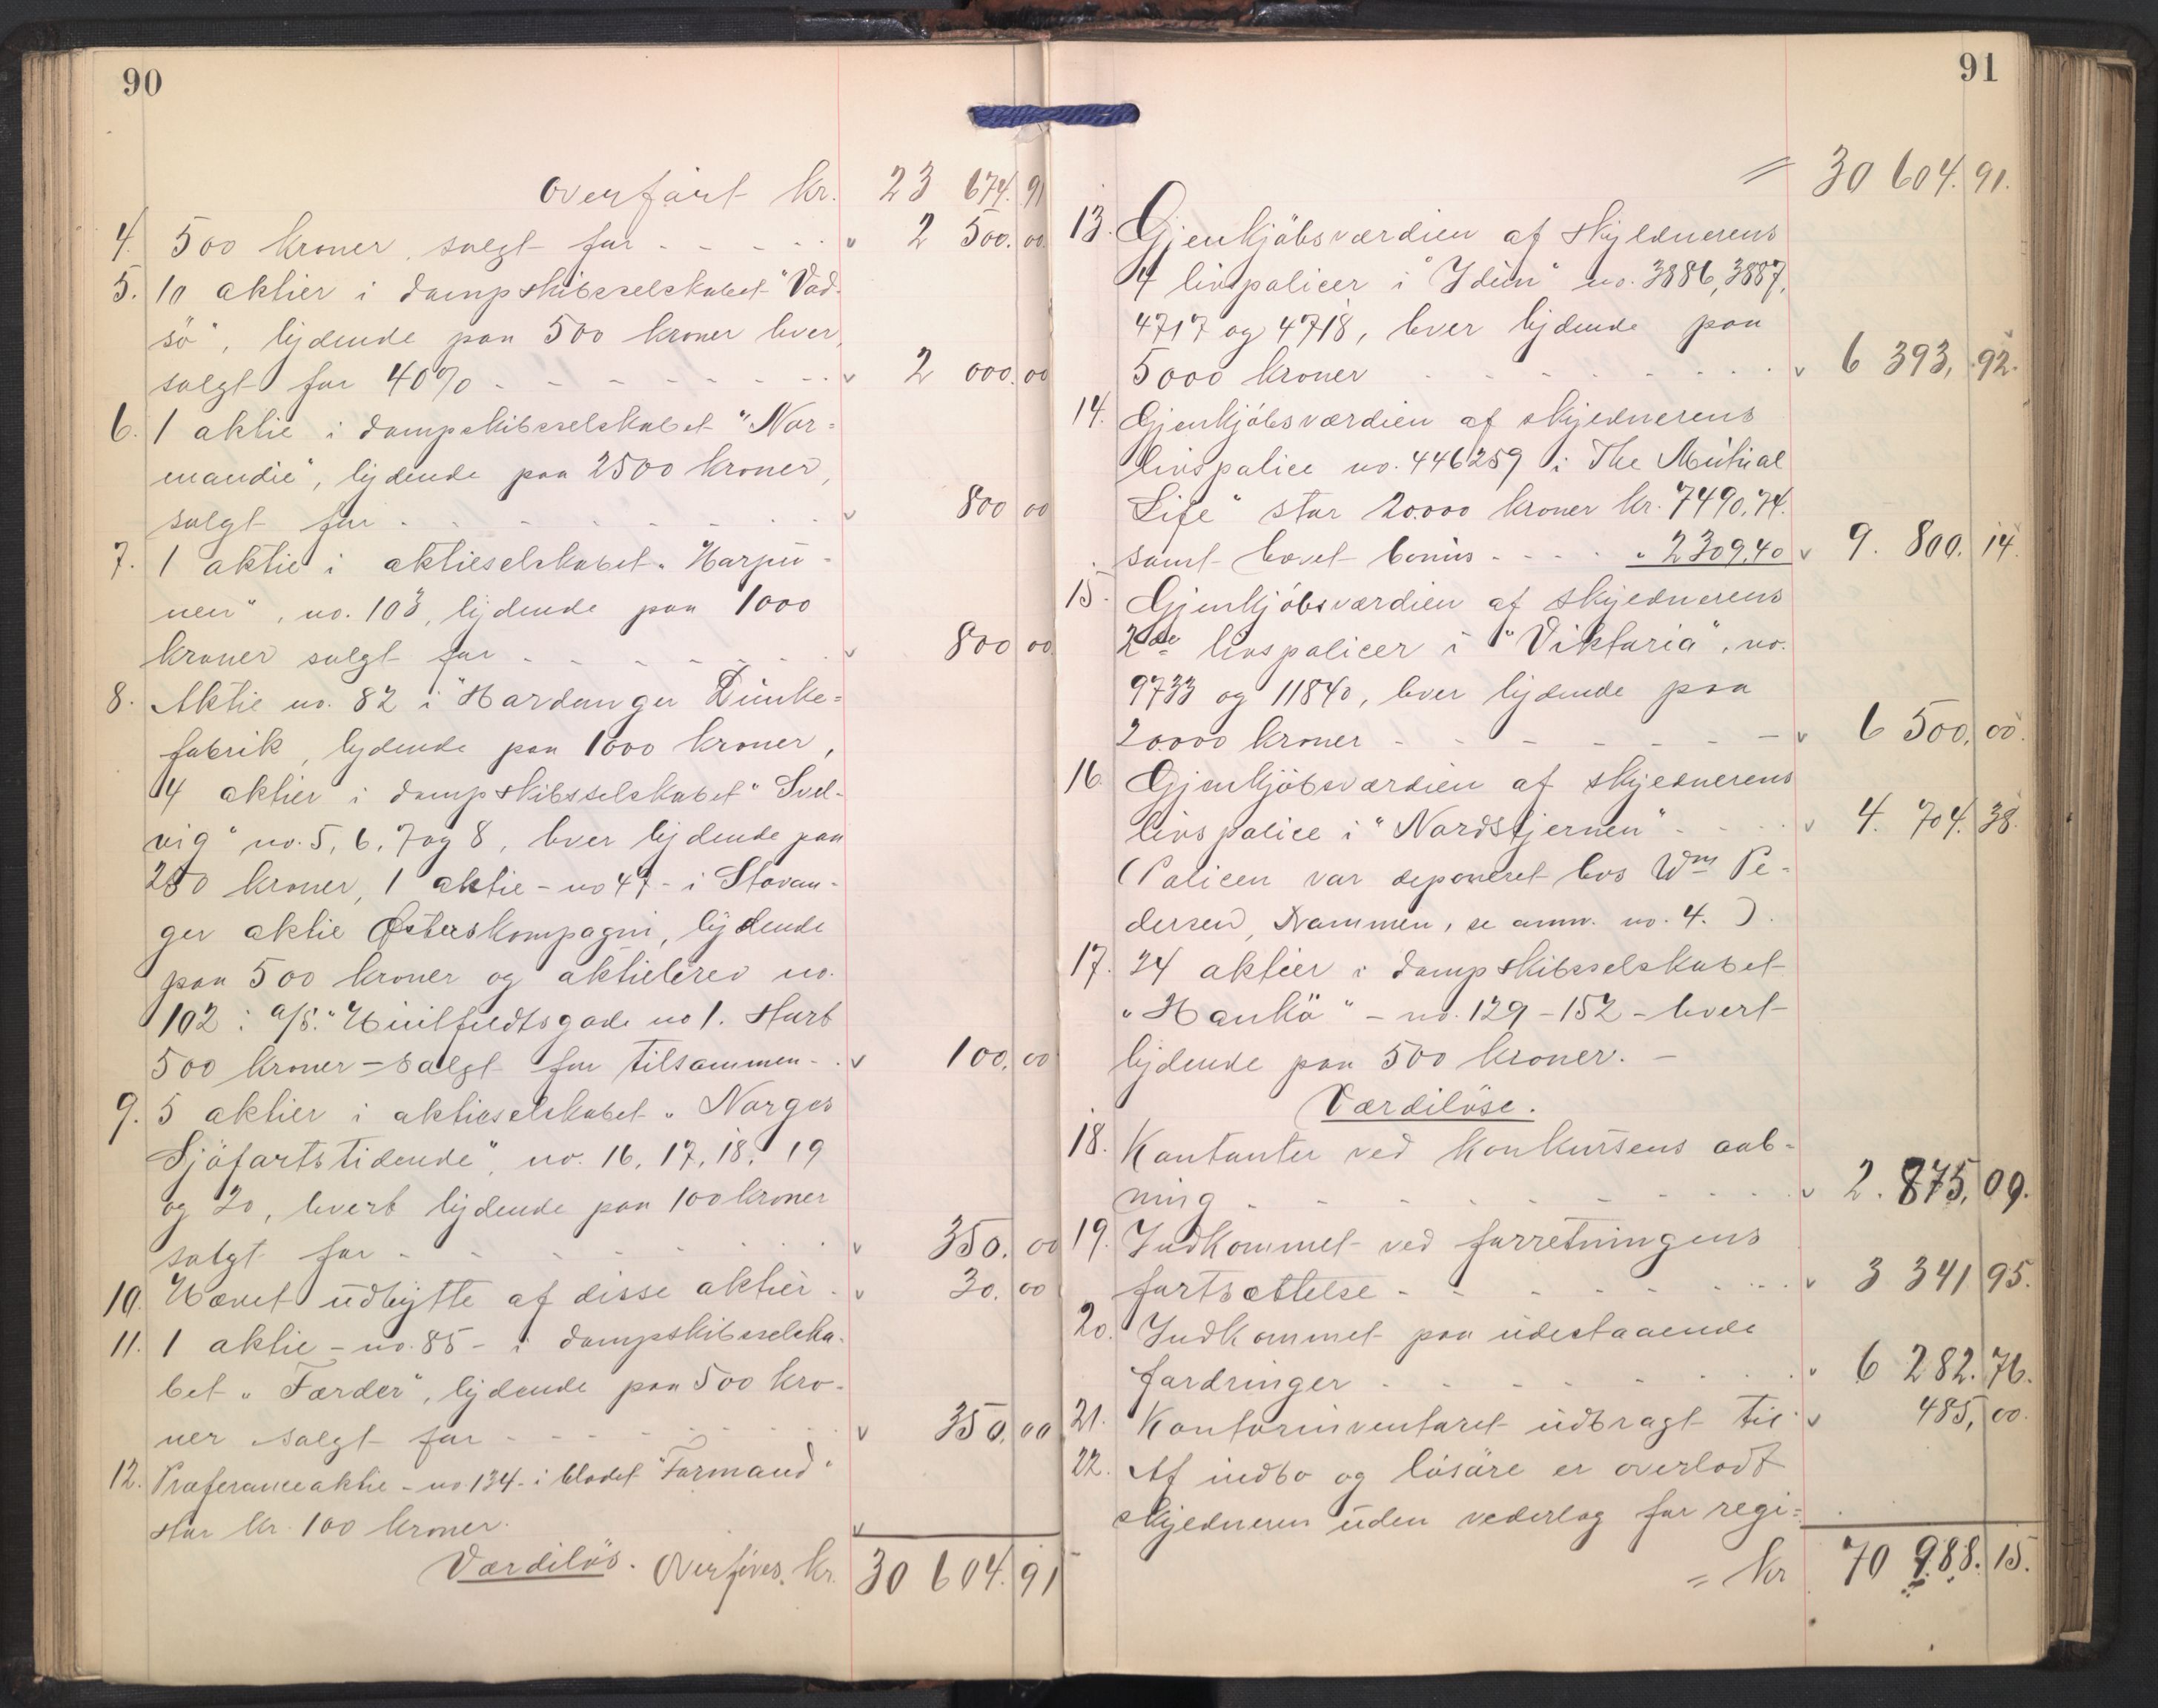 90
overført kr. 23 674.91
4. 500 kroner, solgt for - - - - - v 2 500.00
5. 10 aktier i dampskibsselskabet "Vad-
sö", lydende paa 500 kroner hver,
solgt for 40% - - - - - - - v 2 000.00
6. 1 aktie i dampskibsselskabet "Nor=
mandie", lydende paa 2500 kroner,
solgt for - - - - - - - v 800 00
7. 1 aktie i aktieselskabet "Harpu-
nen", no. 103, lydende paa 1000
kroner solgt for - - - - - - v 800 00
8. Aktie no. 82 i "Hardanger Dunke=
fabrik, lydende paa 1000 kroner,
4 aktier i dampskibsselskabet "Svel-
vig" no. 5, 6, 7 og 8, hver lydende paa
250 kroner, 1 aktie - no 47 - i Stavan-
ger aktie Østerskompagni, lydende
paa 500 kroner og aktiebrev no.
102 i a/s. "Huitfeldtsgade no 1. stort
500 kroner - solgt for tilsammen - v 100.00
9. 5 aktier i aktieselskabet "Norges
Sjöfartstidende", no. 16, 17, 18, 19
og 20, hvert lydende paa 100 kroner
solgt for - - - - - - - v 350.00
10. Hævet udbytte af disse aktier - v 30.00
11. 1 aktie - no. 85 - i dampskibsselska-
bet "Færder", lydende paa 500 kro-
ner solgt for - - - - - - v 350.00
12. Præferanceaktie - no 134 - i bladet "Farmand"
stor kr. 100 kroner. v
Værdilös. Overføres kr. 30 604.91
91
= 30 604.91.
13. Gjenkjöbsværdien af skyldnerens
4 livspolicer i "Idun" no. 3886, 3887,
4717 og 4718, hver lydende paa
5000 kroner - - - - - - - v 6 393,.92.
14. Gjenkjöbsværdien af skyldnerens
livspolice no. 446259 i The Mutual
Life" stor 20.000 kroner kr. 7490.74.
samt hævet bonus - - - - " 2309.40 v 9. 800. 14.
15. Gjenkjöbsværdien af skyldnerens
2de livspolicer i "Viktoria", no.
9733 og 11840, hver lydende paa
20000 kroner - - - - - - - v 6 500.00.
16. Gjenkjöbsværdien af skyldnerens
livspolice i "Nordstjernen" - - - v 4. 704.38.
(Policen var deponeret hos Wm Pe-
dersen, Drammen, se anm. no. 4.).
17. 24 aktier i dampskibsselskabet
"Hankö" - no. 129 - 152 - hvert
lydende paa 500 kroner. -
Værdilöse.
18. Kontanter ved konkursens aab-
ning - - - - - - - - v 2. 875,09.
19. Indkommet ved forretningens
fortsættelse - - - - - - - v 3 341 95.
20. Indkommet paa udestaaende
fordringer - - - - - - - " 6 282.76.
21. Kontorinventaret udbragt til v 485,00.
22. Af indbo og lösöre er overladt
skyldneren uden vederlag for regi=
= kr 70 988.15.